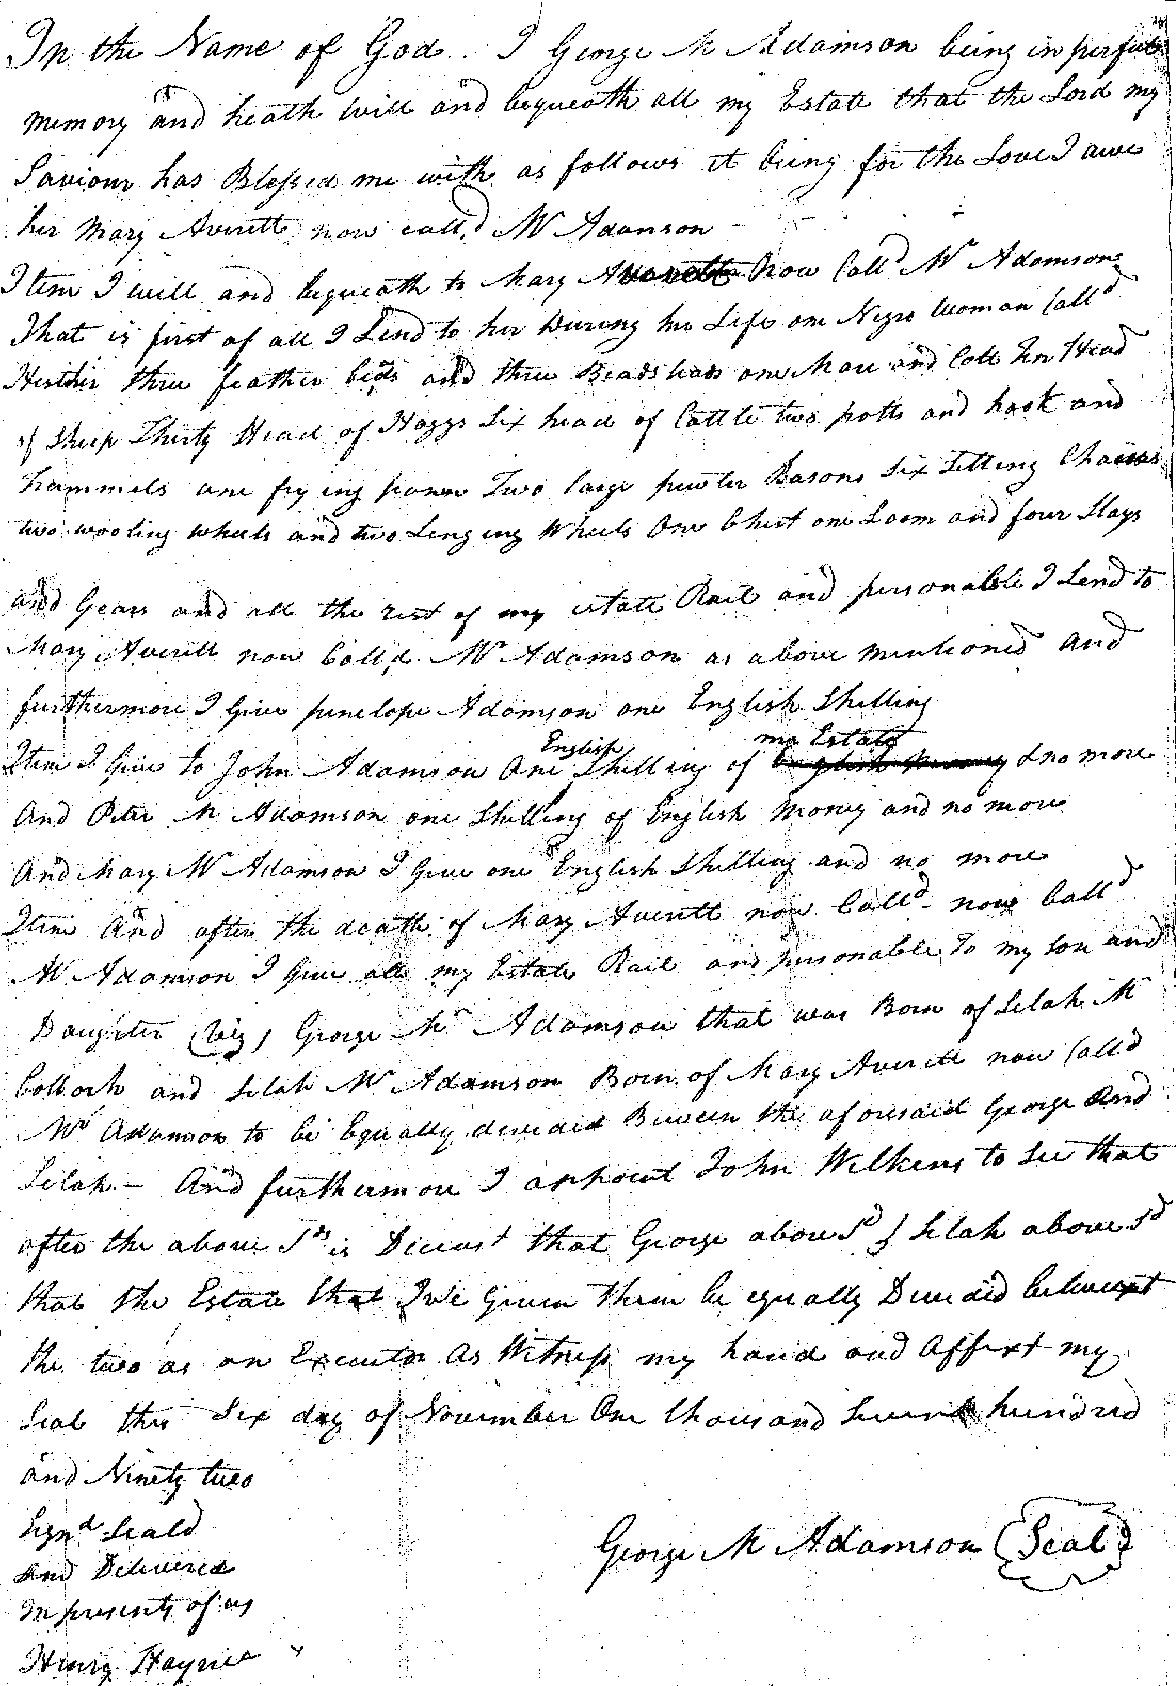 In the Name of God. I George Mc Adamson being in perfect
memory and heath will and bequeath all my Estate that the Lord my
Saviour has Blessed me with as follows it being for the Love I awe
her Mary Averitt now calld Mc Adamson
Item I will and bequeath to Mary Averitt Now Calld Mc Adamson
That is first of all I Lend to her During her Life one Negro Woman Calld
Hesther three feather beds and three Beadsteads one Mare and Colt Ten Head
of Sheep Thirty Head of Hoggs Six head of Cattle two potts and hook and
hammels one frying pann Two large pewter Basons Six Setting Chairs
two wooling wheels and two Lenging Wheels One Chest one Loom and four Slays
and Gears and all the rest of my estate Rail and personable I Lend to
Mary Averitt now Calld Mc Adamson as above mentioned and
furthermore I Give penelope Adamson one English Shilling
Item I Give to John Adamson One English Shilling of my Estate & no more
And Peter Mc Adamson one Shilling of English Money and no more
And Mary Mc Adamson I Give one English Shilling and no more
Item And after the death of Mary Averitt now Calld - now Calld
Mc Adamson I Give all my Estate Rail and personable To my Son and
Daughter (Viz) George Mc Adamson that was Born of Selah Mc
Colloch and Selah Mc Adamson Born of Mary Averitt now Calld
Mc Adamson to be Equally devided Between the aforesaid George And
Selah - And furthermore I appoint John Wilkins to See that
after the above Sd is Deceast that George above Sd & Selah above Sd
that the Estate that I've Given them be equally Devided betwext
the two as an Executor As Witness my hand and Affixt my
Seal this Six day of November One thousand Seven hundred
and Ninety two
Signd Seald
and Delivered
In presents of us
George Mc Adamson (Seal)
Henry Haynes